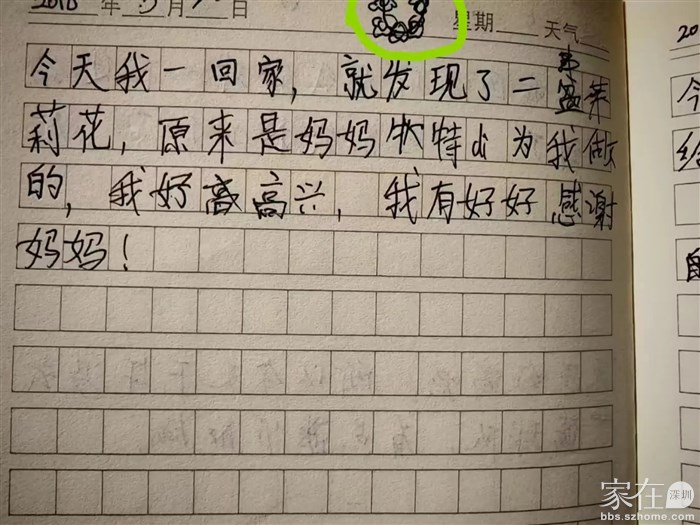 年 月 日 星期 天气
今天我一回家，就发现了二盆茉
莉花，原来是妈妈特di为我做
的，我好高高兴，我有好好感谢
妈妈！
20
今
给
家在深圳
bbs.szhome.com